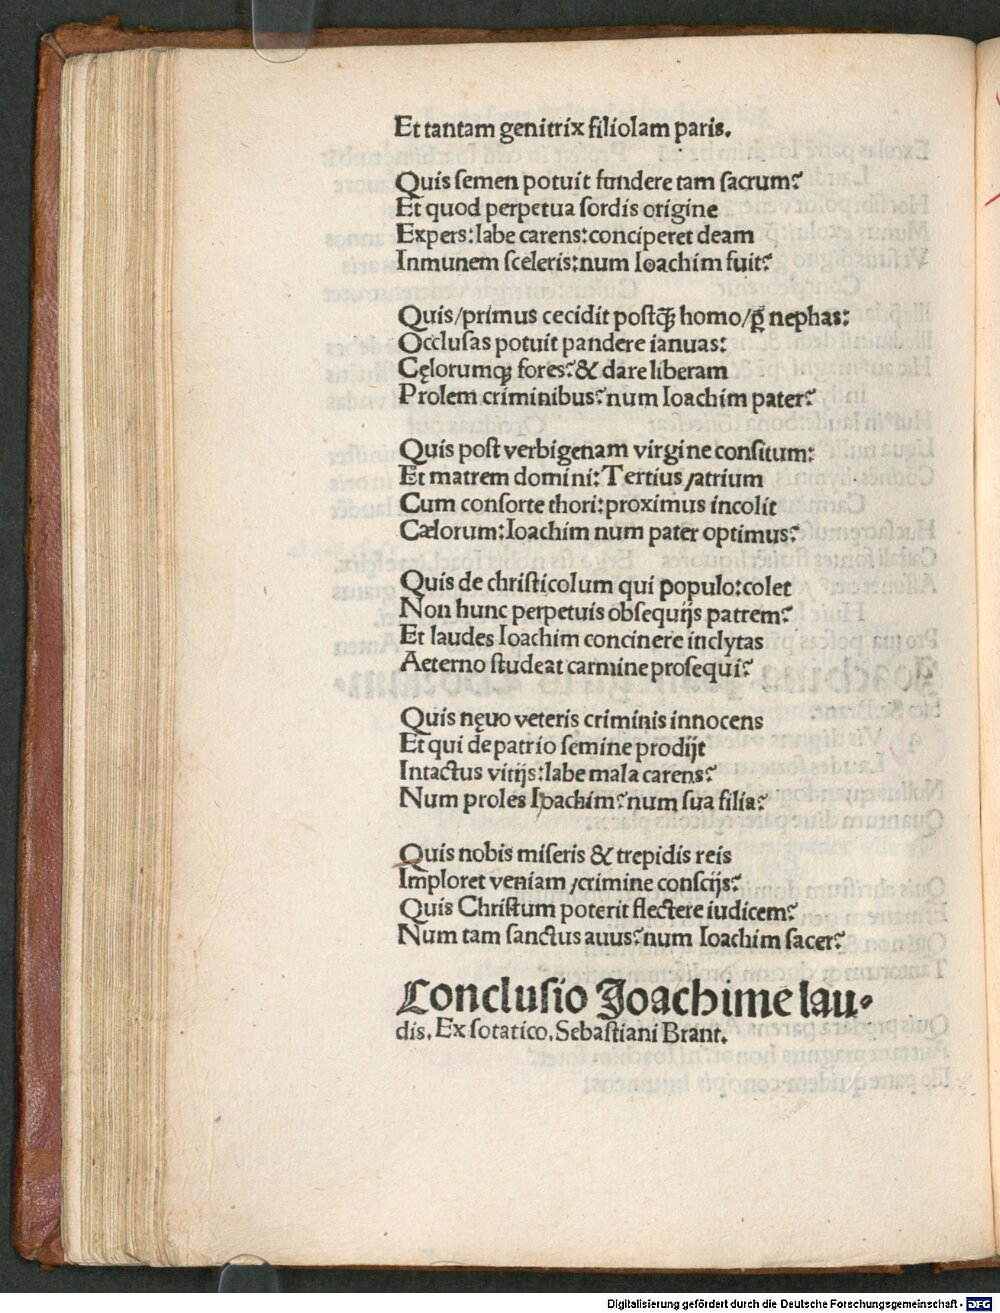 Et tantam genitrix filiolam paris.
Quis semen potuit fundere tam sacrum?
Et quod perpetua sordis origine
Expers: labe carens: conciperet deam
Inmunem sceleris: num Ioachim fuit?
Quis/primus cecidit postq̃ꝫ homo/ꝑ nephas:
Occlusas potuit pandere ianuas:
Cęlorumqꝫ fores? & dare liberam
Prolem criminibus? num Ioachim pater?
Quis post verbigenam virgine consitum:
Et matrem domini: Tertius /atrium
Cum consorte thori: proximus incolit
Cælorum: Ioachim num pater optimus?
Quis de christicolum qui populo: colet
Non hunc perpetuis obsequijs patrem?
Et laudes Ioachim concinere inclytas
Aeterno studeat carmine prosequi?
Quis nęuo veteris criminis innocens
Et qui de patrio semine prodijt
Intactus vitijs: labe mala carens?
Num proles Ioachim? num sua filia?
Quis nobis miseris & trepidis reis
Imploret veniam /crimine conscijs?
Quis Christum poterit flectere iudicem?
Num tam sanctus auus? num Ioachim sacer?
Conclusio Joachime lau-
dis. Ex sotatico. Sebastiani Brant.
Digitalisierung gefördert durch die Deutsche Forschungsgemeinschaft - DFG